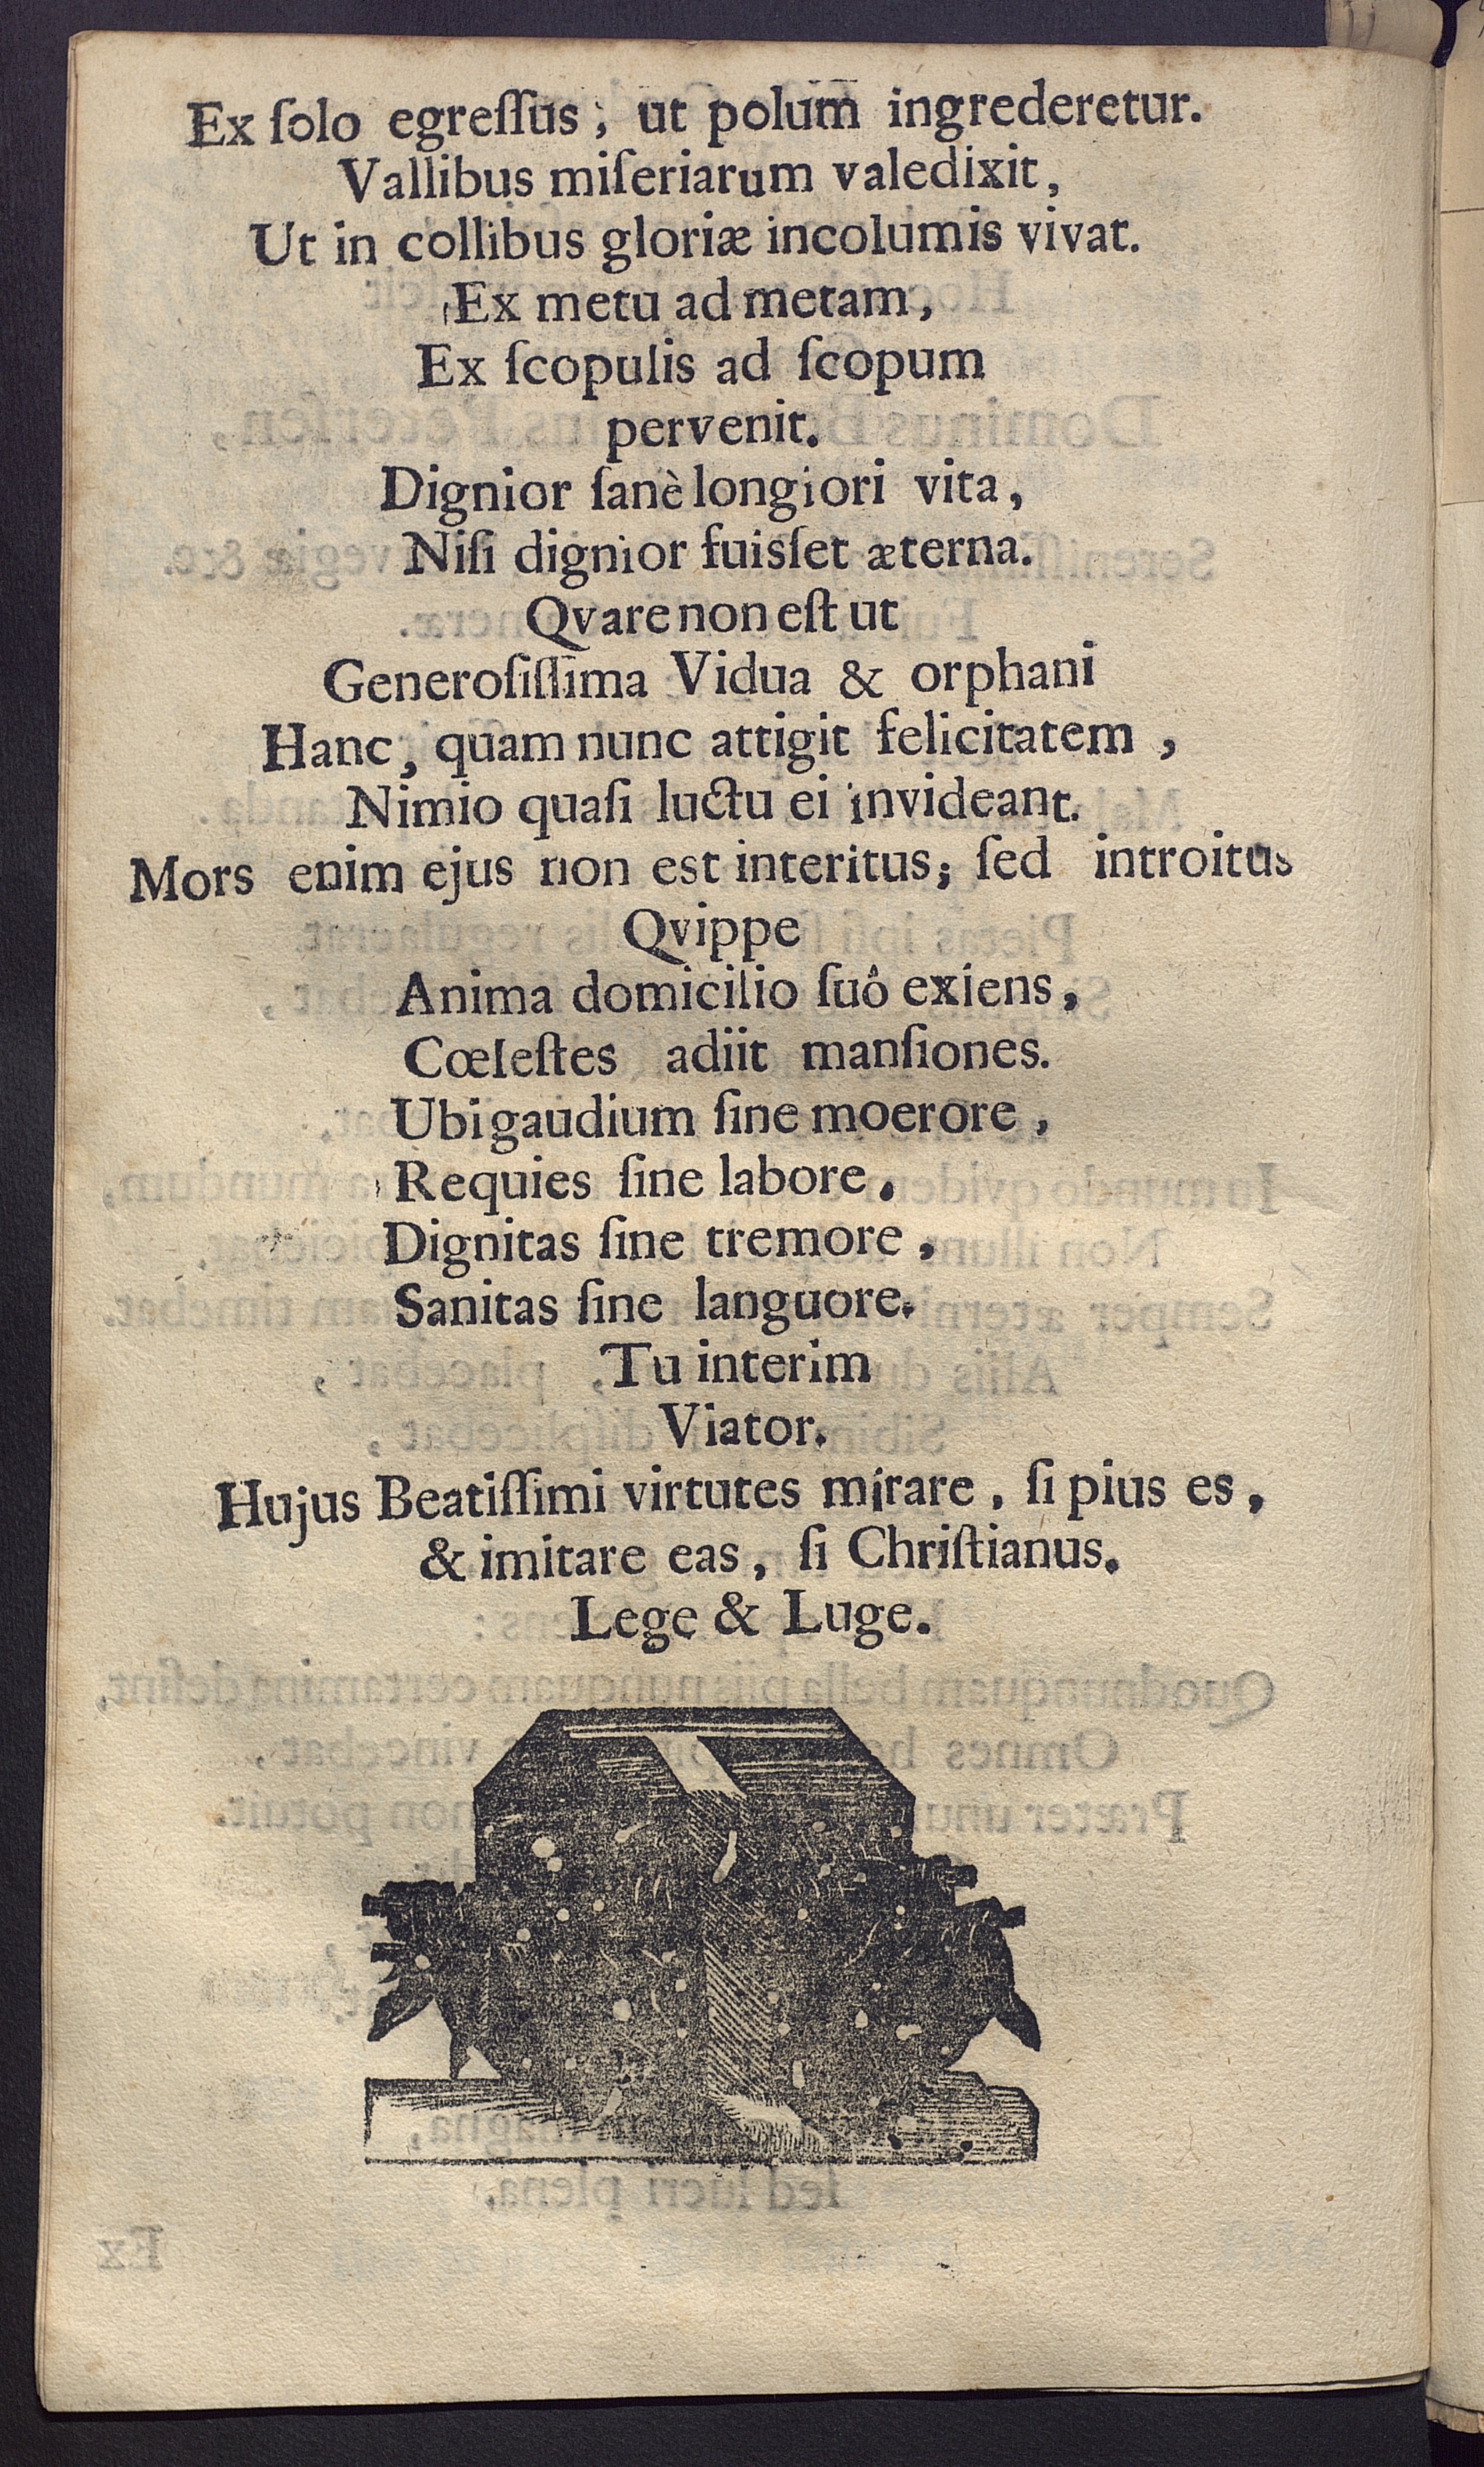 Ex ſolo egreſſus; ut polum ingrederetur.
Vallibus miſeriarum valedixit,
Ut in collibus gloriæ incolumis vivat.
Ex metu ad metam,
Ex ſcopulis ad ſcopum
pervenit.
Dignior ſanè longiori vita,
Niſi dignior fuisſet æterna.
Qvare non eſt ut
Generoſiſſima Vidua & orphani
Hanc, quam nunc attigit felicitatem,
Nimio quaſi luctu ei invideant.
Mors enim ejus non est interitus; ſed introitus
Qvippe
Anima domicilio ſuô exiens,
Cœleſtes adiit manſiones.
Ubi gaudium ſine moerore,
Requies ſine labore.
Dignitas ſine tremore,
Sanitas ſine languore.
Tu interim
Viator.
Hujus Beatiſſimi virtutes mirare, ſi pius es,
& imitare eas, ſi Chriſtianus.
Lege & Luge.